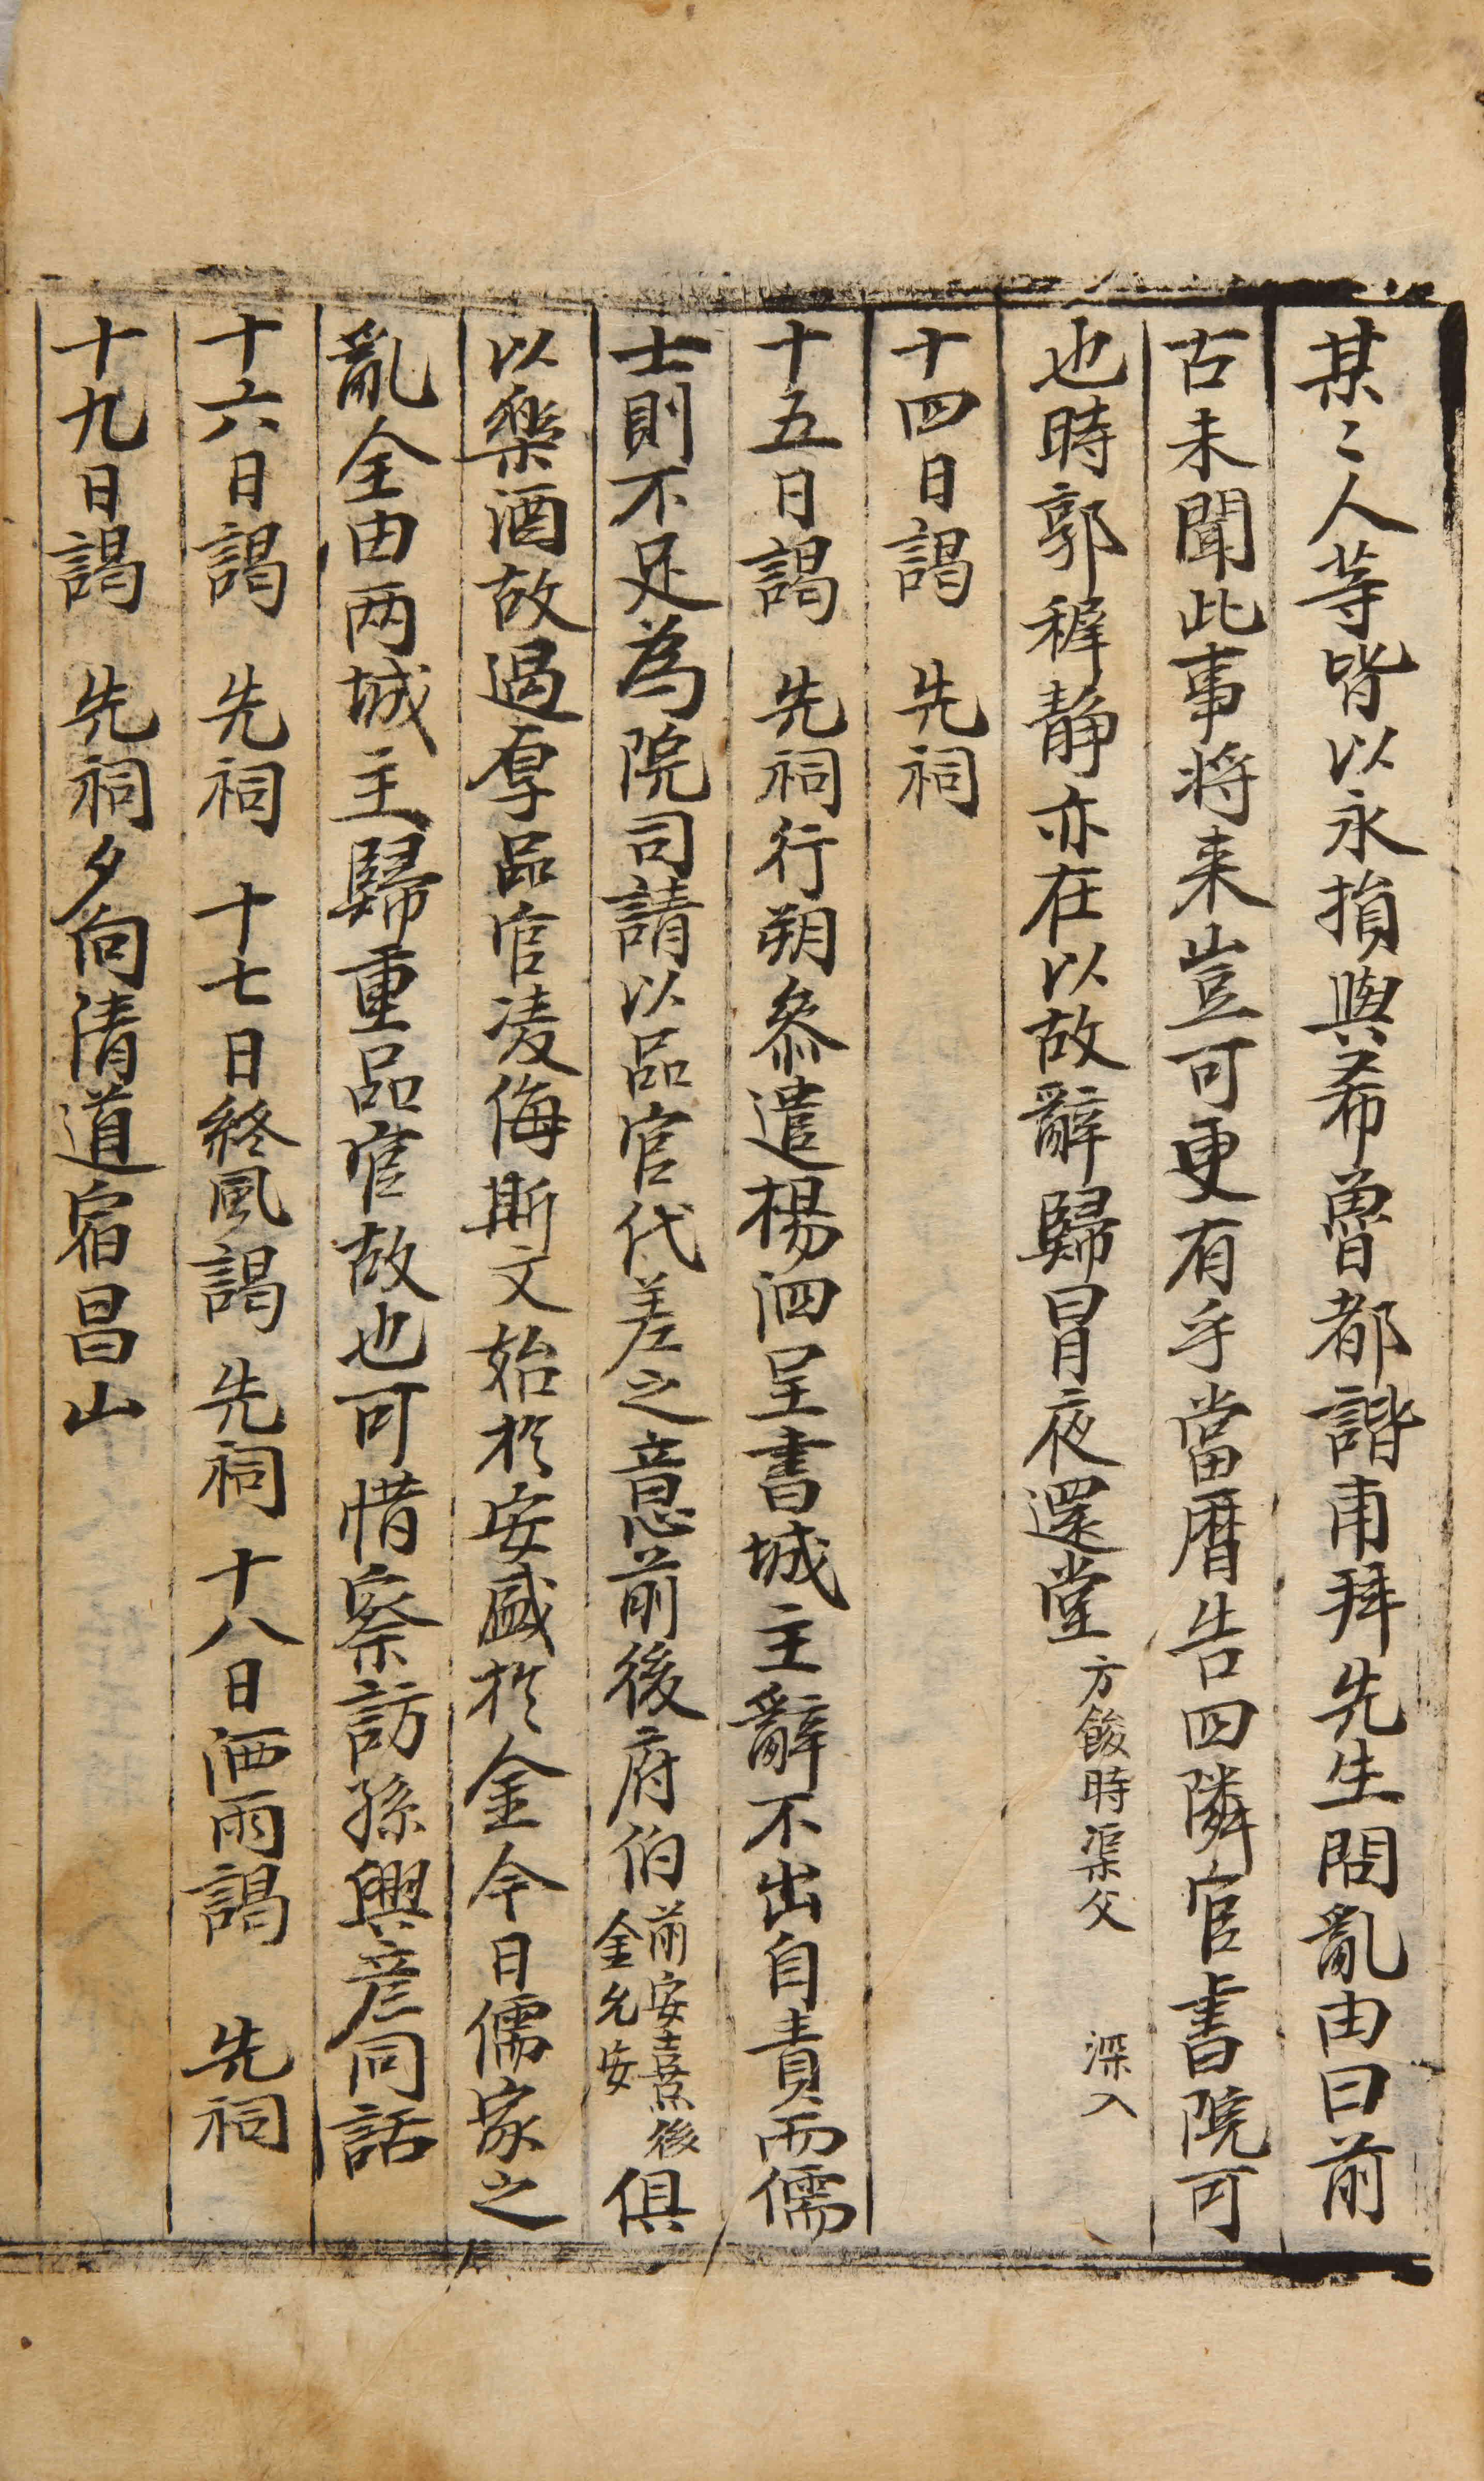 某〻人等皆以永損與希魯都諧甫拜先生問亂由曰前
古未聞此事将来豈可更有乎當曆告四隣官書院可
也時郭穉静亦在以故辭歸冒夜還堂方餕時渠父 深入
十四日謁 先祠
十五日謁 先祠行朔叅遣楊泗呈書城主辭不出自責而儒
士則不足為院司請以品官代差之意前後府伯前安熹後金允安俱
以樂酒故過厚品官凌侮斯文始於安盛於金今日儒家之
亂全由两城主歸重品官故也可惜察訪孫興彦同話
十六日謁 先祠 十七日終風謁 先祠 十八日洒雨謁 先祠
十九日謁 先祠夕向清道宿昌山